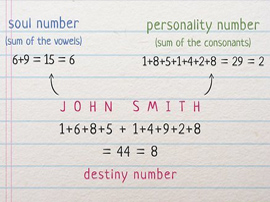 soul number
(sum of the vowels)
6+9 = 15 = 6
personality number
(sum of the consonants)
1+8+5+1+4+2+8 = 29 = 2
JOHN SMITH
1+6+8+5 + 1+4+9+2+8
= 44 = 8
destiny number